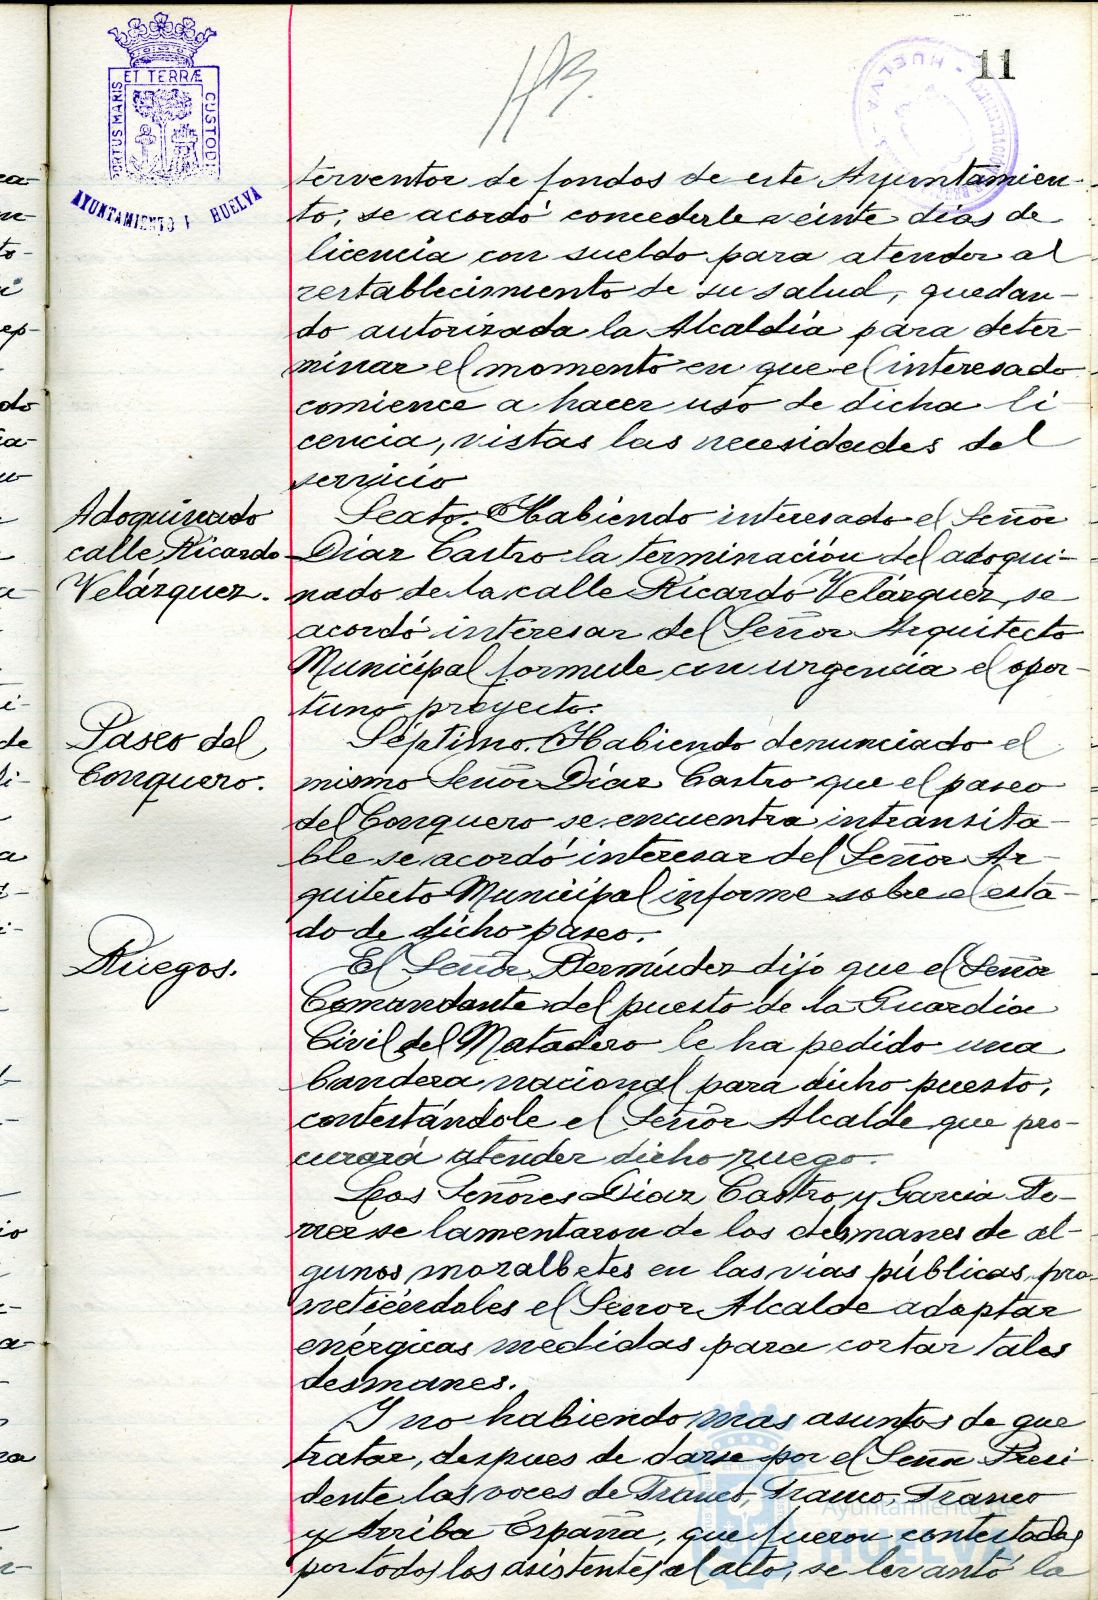 11
PORTUS MARIS
ET TERRÆ
CUSTODI
AYUNTAMIENTO HUELVA
HUELVA
terventor de fondos de este Ayuntamien-
to, se acordó concederle veinte días de
licencia con sueldo para atender al
restablecimiento de su salud, quedan-
do autorizada la Alcaldía para deter-
minar el momento en que el interesado
comience a hacer uso de dicha li
cencia, vistas las necesidades del
servicio
Adoquinado
calle Ricardo
Velázquez.
Sexto. Habiendo interesado el Señor
Díaz Castro la terminación del adoqui-
nado de la calle Ricardo Velázquez, se
acordó interesar del Señor Arquitecto
Municipal formule con urgencia el opor-
tuno proyecto.
Paseo del
Conquero.
Séptimo. Habiendo denunciado el
mismo Señor Díaz Castro que el paseo
del Conquero se encuentra intransita-
ble se acordó interesar del Señor Ar-
quitecto Municipal informe sobre el esta-
do de dicho paseo.
Ruegos.
El Señor Bermúdez dijo que el Señor
Comandante del puesto de la Guardia
Civil del Matadero le ha pedido una
bandera nacional para dicho puesto,
contestándole el Señor Alcalde que pro-
curará atender dicho ruego.
Los Señores Díaz Castro y García
se lamentaron de los desmanes de al-
gunos mozalbetes en las vías públicas, pro
metiéndoles el Señor Alcalde adoptar
enérgicas medidas para cortar tales
desmanes.
Y no habiendo mas asuntos de que
tratar, despues de darse por el Señor Presi
dente las voces de Franco, Franco, Franco
y Arriba España, que fueron contestadas
por todos los asistentes al acto, se levantó la
Ayuntamiento de
HUELVA